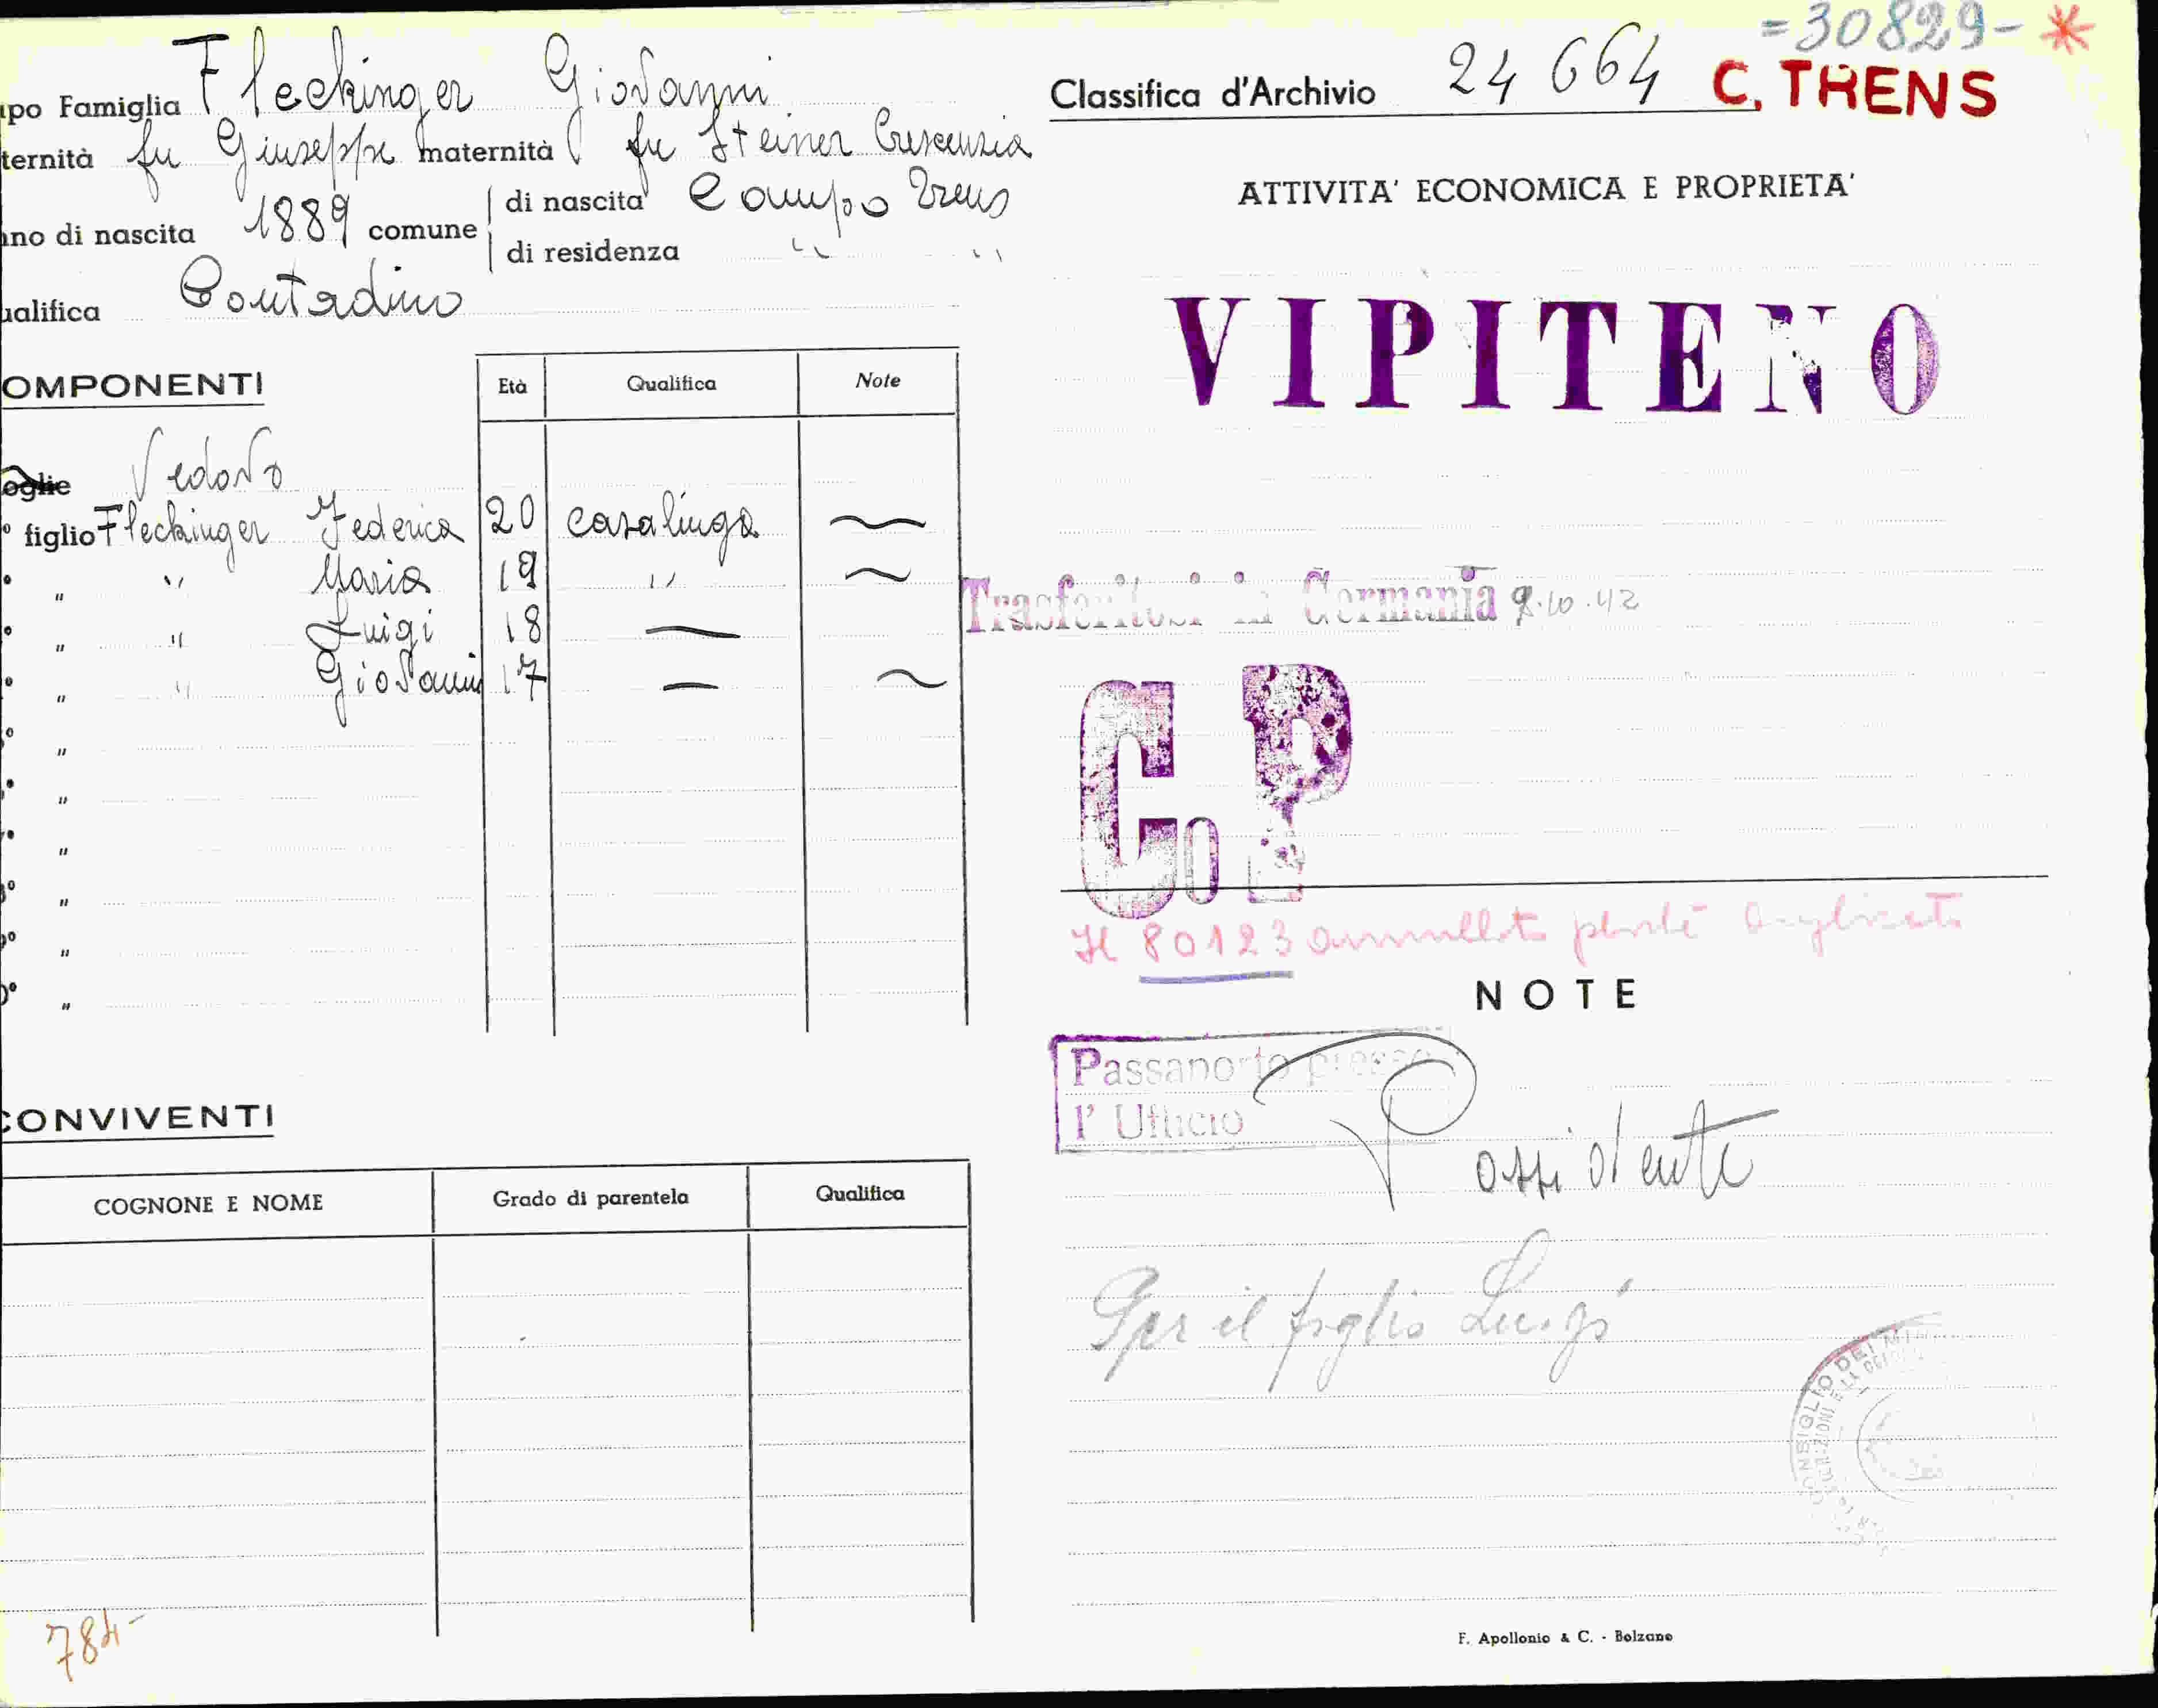 =30829- *
po Famiglia Fleckinger Giovanni
ternità fu Giuseppe maternità fu Steiner Crescenzia
no di nascita 1889 comune di nascita Campo Trens
di residenza " "
ualifica Contadino
OMPONENTI Età Qualifica Note
oglie Vedovo
° figlio Fleckinger Federica 20 casalinga —
° " " Maria 19 " —
° " " Luigi 18 —
° " " Giovanni 17 — —
° "
° "
° "
° "
° "
0° "
CONVIVENTI
COGNONE E NOME Grado di parentela Qualifica
784-
Classifica d'Archivio 24 664 C. TRENS
ATTIVITA' ECONOMICA E PROPRIETA'
VIPITENO
Trasferitosi in Germania 9.10.42
Co P
Il 80123 annullato perchè duplicato
NOTE
Passaporto presso
l' Ufficio
Possidente
Per il figlio Luigi
CONSIGLIO DEI MI
F. Apollonio & C. - Bolzano